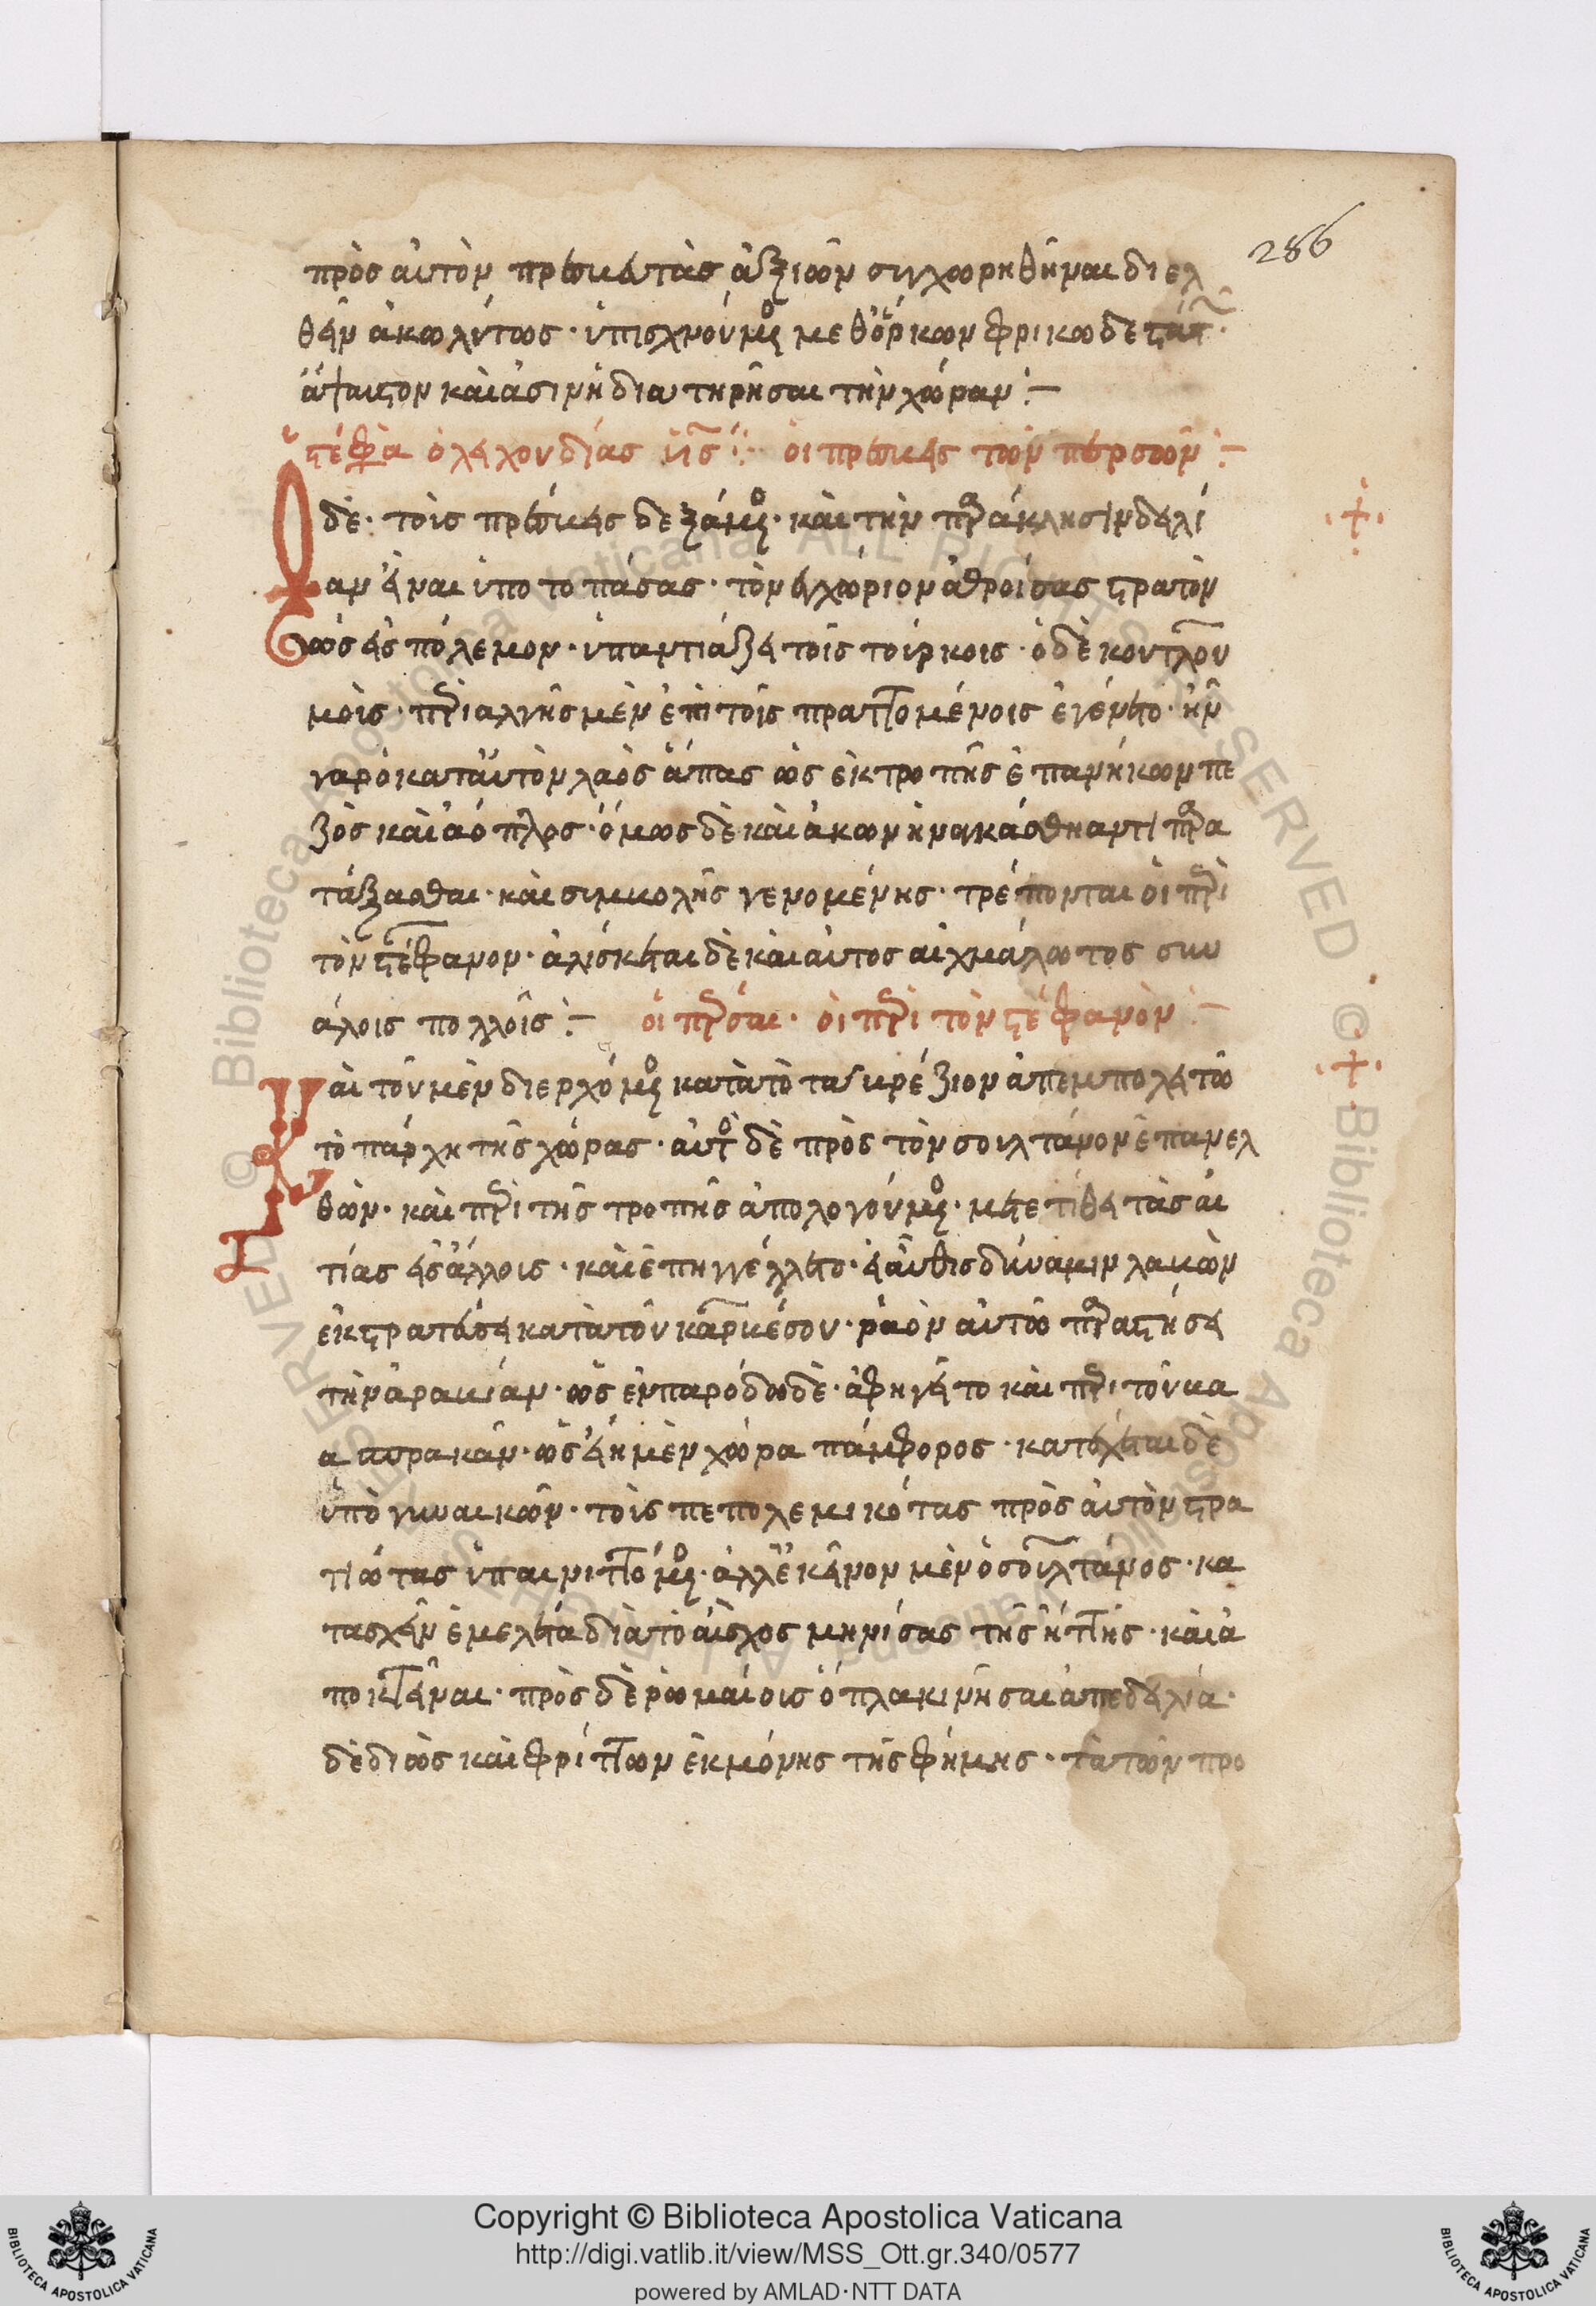 286
πρὸς αὐτὸν πρέσβεις τὰς ἀξιῶν συγχωρηθῆναι διελ
θεῖν ἀκωλύτως · ὑπισχνούμενος μεθ' ὅρκων φρικωδεστάτ
ἄψαυστον καὶ ἀσινῆ διατηρῆσαι τὴν χώραν :–
ὁι πρέσβεις τῶν περσῶν :–
δὲ · τοὺς πρέσβεις δεξάμενος · καὶ τὴν παράκλησιν δειλί
αν εἶναι ὑποτοπάσας · τὸν ἐγχώριον ἀθροίσας στρατὸν
ὡς εἰς πόλεμον · ὑπαντιάζει τοῖς τούρκοις · ὁ δὲ κουτλου
μοὺς · περιαλγὴς μὲν ἐπὶ τοῖς πραττομένοις ἐγένετο · ἦν
γὰρ ὁ κατ' αὐτὸν λαὸς ἅπας ὡς ἐκ τροπῆς ἐπανήκων πε
ζὸς καὶ ἄοπλος · ὅμως δὲ καὶ ἄκων ἠναγκάσθη ἀντιπαρα
τάξασθαι · καὶ συμβολῆς γενομένης · τρέπονται οἱ περὶ
τὸν στέφανον · ἁλίσκεται δὲ καὶ αὐτὸς αἰχμάλωτος συν
άλοις πολλοῖς :– οἱ πέρσαι · οἱ περὶ τὸν στέφανον :–
αὶ τοῦ μὲν διερχόμενος κατὰ τὸ ταβρέζιον ἀπεμπολεῖ τῶ
τοπάρχη τῆς χώρας · αὐτὸς δὲ πρὸς τὸν σουλτάνον ἐπανελ
θὼν · καὶ περὶ τῆς τροπῆς ἀπολογούμενος · μετετίθει τὰς αἰ
τίας εἰς ἄλλοις · καὶ ἐπηγγέλλετο · εἰ αὖθις δύναμιν λαβὼν
ἐκστρατεύσει κατὰ τοῦ καρβέσου · ῥᾶον αὐτῶ παραστήσει
τὴν ἀραβίαν · ὡς ἐν παρόδω δὲ · ἀφηγεῖτο καὶ περὶ τοῦ βα
ασπρακὰν · ὡς εἴη μὲν χώρα πάμφορος · κατέχεται δὲ
ὑπὸ γυναικῶν · τοὺς πεπολεμικότας πρὸς αὐτὸν στρα
τιώτας ὑπαινιττόμενος · ἀλλ' ἐκεῖνον μὲν ὁ σουλτάνος · κα
τασχεῖν ἐμελέτα διὰ τὸ αἶσχος μηνίσας τῆς ἥττης · καὶ ἀ
ποκτεῖναι · πρὸς δὲ ῥωμαίοις ὅπλα κινῆσαι ἀπεδειλία ·
δεδιὼς καὶ φρίττων ἐκ μόνης τῆς φήμης · τὰ τῶν προ
Copyright © Biblioteca Apostolica Vaticana
http://digi.vatlib.it/view/MSS_Ott.gr.340/0577
powered by AMLAD·NTT DATA